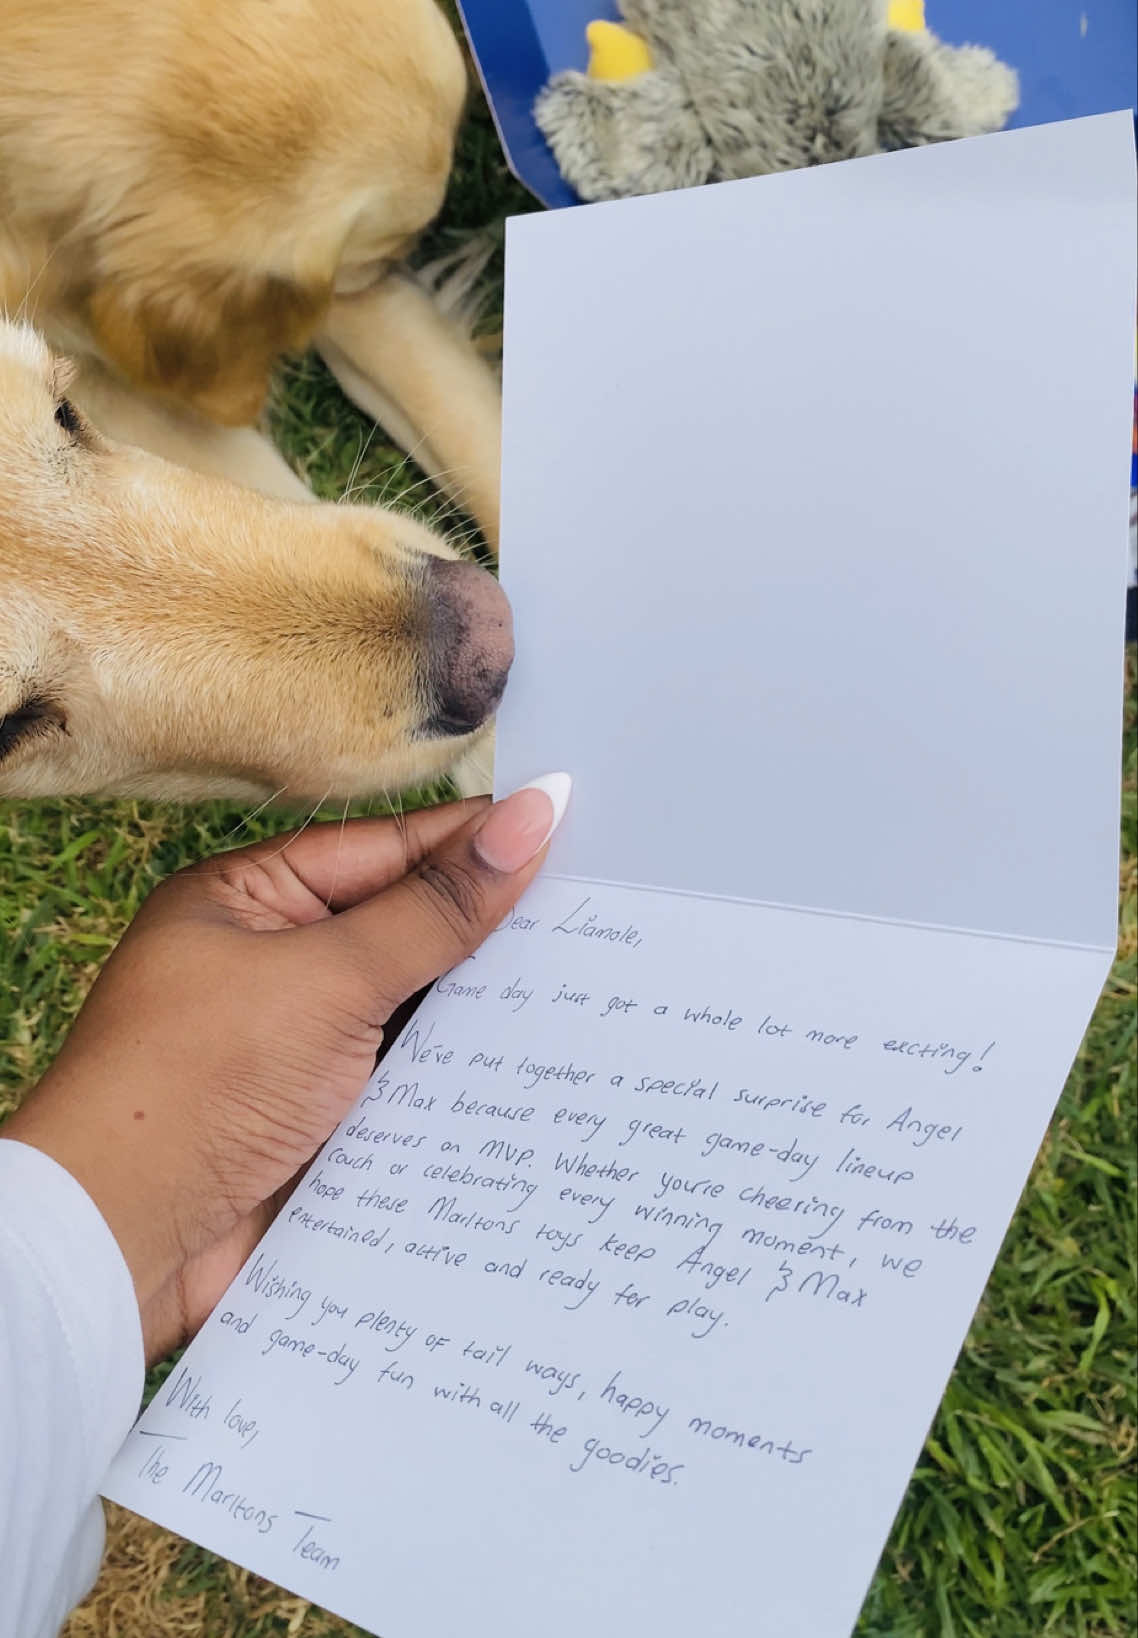 Dear Liamole,
Game day just got a whole lot more excting!
We've put together a special surprise for Angel
& Max because every great game-day lineup
deserves an MVP. Whether you're cheering from the
couch or celebrating every winning moment, we
hope these Marltons toys keep Angel & Max
entertained, active and ready for play.
Wishing you plenty of tail ways, happy moments
and game-day fun with all the goodies.
With love,
The Marltons Team